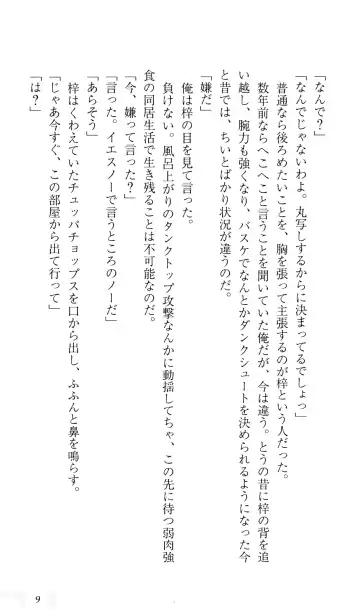 「なんで？」
「なんでじゃないわよ。丸写しするからに決まってるでしょっ」
普通なら後ろめたいことを、胸を張って主張するのが梓という人だった。
数年前ならへこへこと言うことを聞いていた俺だが、今は違う。とうの昔に梓の背を追
い越し、腕力も強くなり、バスケでなんとかダンクシュートを決められるようになった今
と昔では、ちいとばかり状況が違うのだ。
「嫌だ」
俺は梓の目を見て言った。
負けない。風呂上がりのタンクトップ攻撃なんかに動揺してちゃ、この先に待つ弱肉強
食の同居生活で生き残ることは不可能なのだ。
「今、嫌って言った？」
「言った。イエスノーで言うところのノーだ」
「あらそう」
梓はくわえていたチュッパチョップスを口から出し、ふふんと鼻を鳴らす。
「じゃあ今すぐ、この部屋から出て行って」
「は？」
9